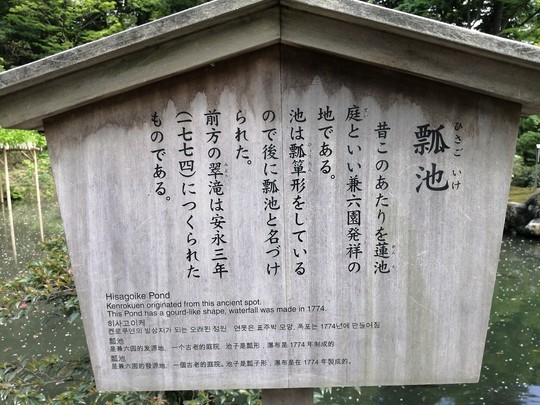 瓢池
ひさご いけ
昔このあたりを蓮池
庭といい兼六園発祥の
地である。
池は瓢箪形をしている
ので後に瓢池と名づけ
られた。
前方の翠滝は安永三年
(一七七四)につくられた
ものである。
Hisagoike Pond
Kenrokuen originated from this ancient spot.
This Pond has a gourd-like shape, waterfall was made in 1774.
히사고이케
켄로쿠엔의 발상지가 되는 오래된 정원 연못은 표주박 모양, 폭포는 1774년에 만들어짐
瓢池
是兼六园的发源地，一个古老的庭院。池子是瓢形，瀑布是1774年制成的
瓢池
是兼六園的發源地，一個古老的庭院。池子是瓢子形，瀑布是在1774年製成的。